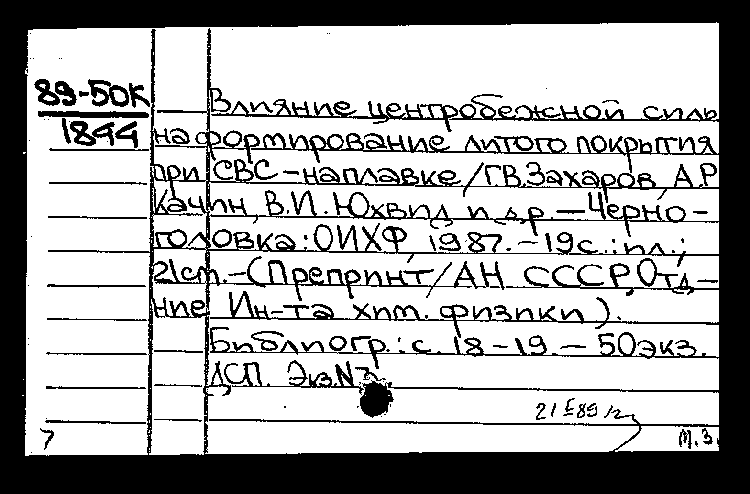 89-50К
1844
Влияние центробежной силы
на формирование литого покрытия
при СВС-наплавке/Г.В.Захаров, А.Р.
Качин, В.И. Юхвид и др. — Черно-
головка: ОИХФ, 1987. – 19с.: ил.;
21см. – (Препринт/АН СССР, Отд-
ние Ин-та хим. физики).
Библиогр.: с. 18-19. – 50экз.
ДСП. Экз.N
7
М.З.